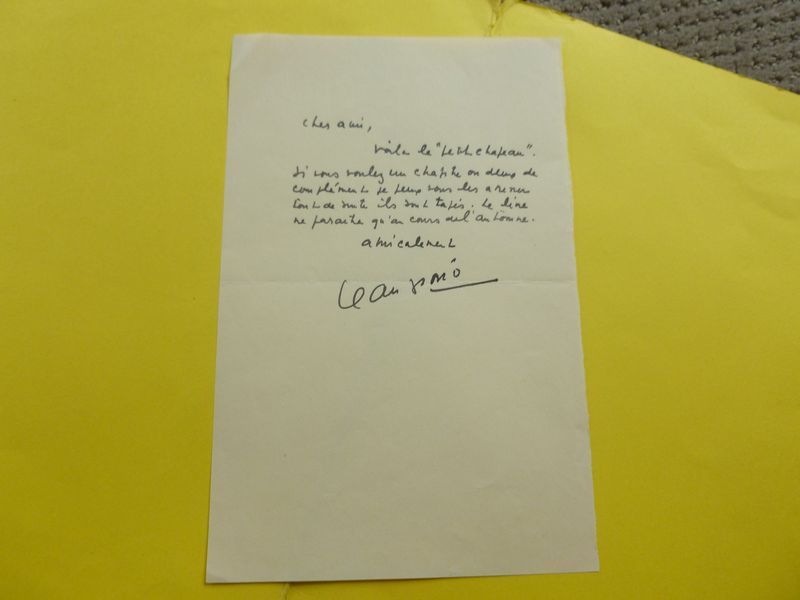 Cher ami,
voilà le "petit chapeau".
Si vous voulez un chapitre ou deux de
complément je peux vous les
tout de suite ils sont tapés. Le livre
ne paraîtra qu'au cours de l'automne.
amicalement
Jean Giono